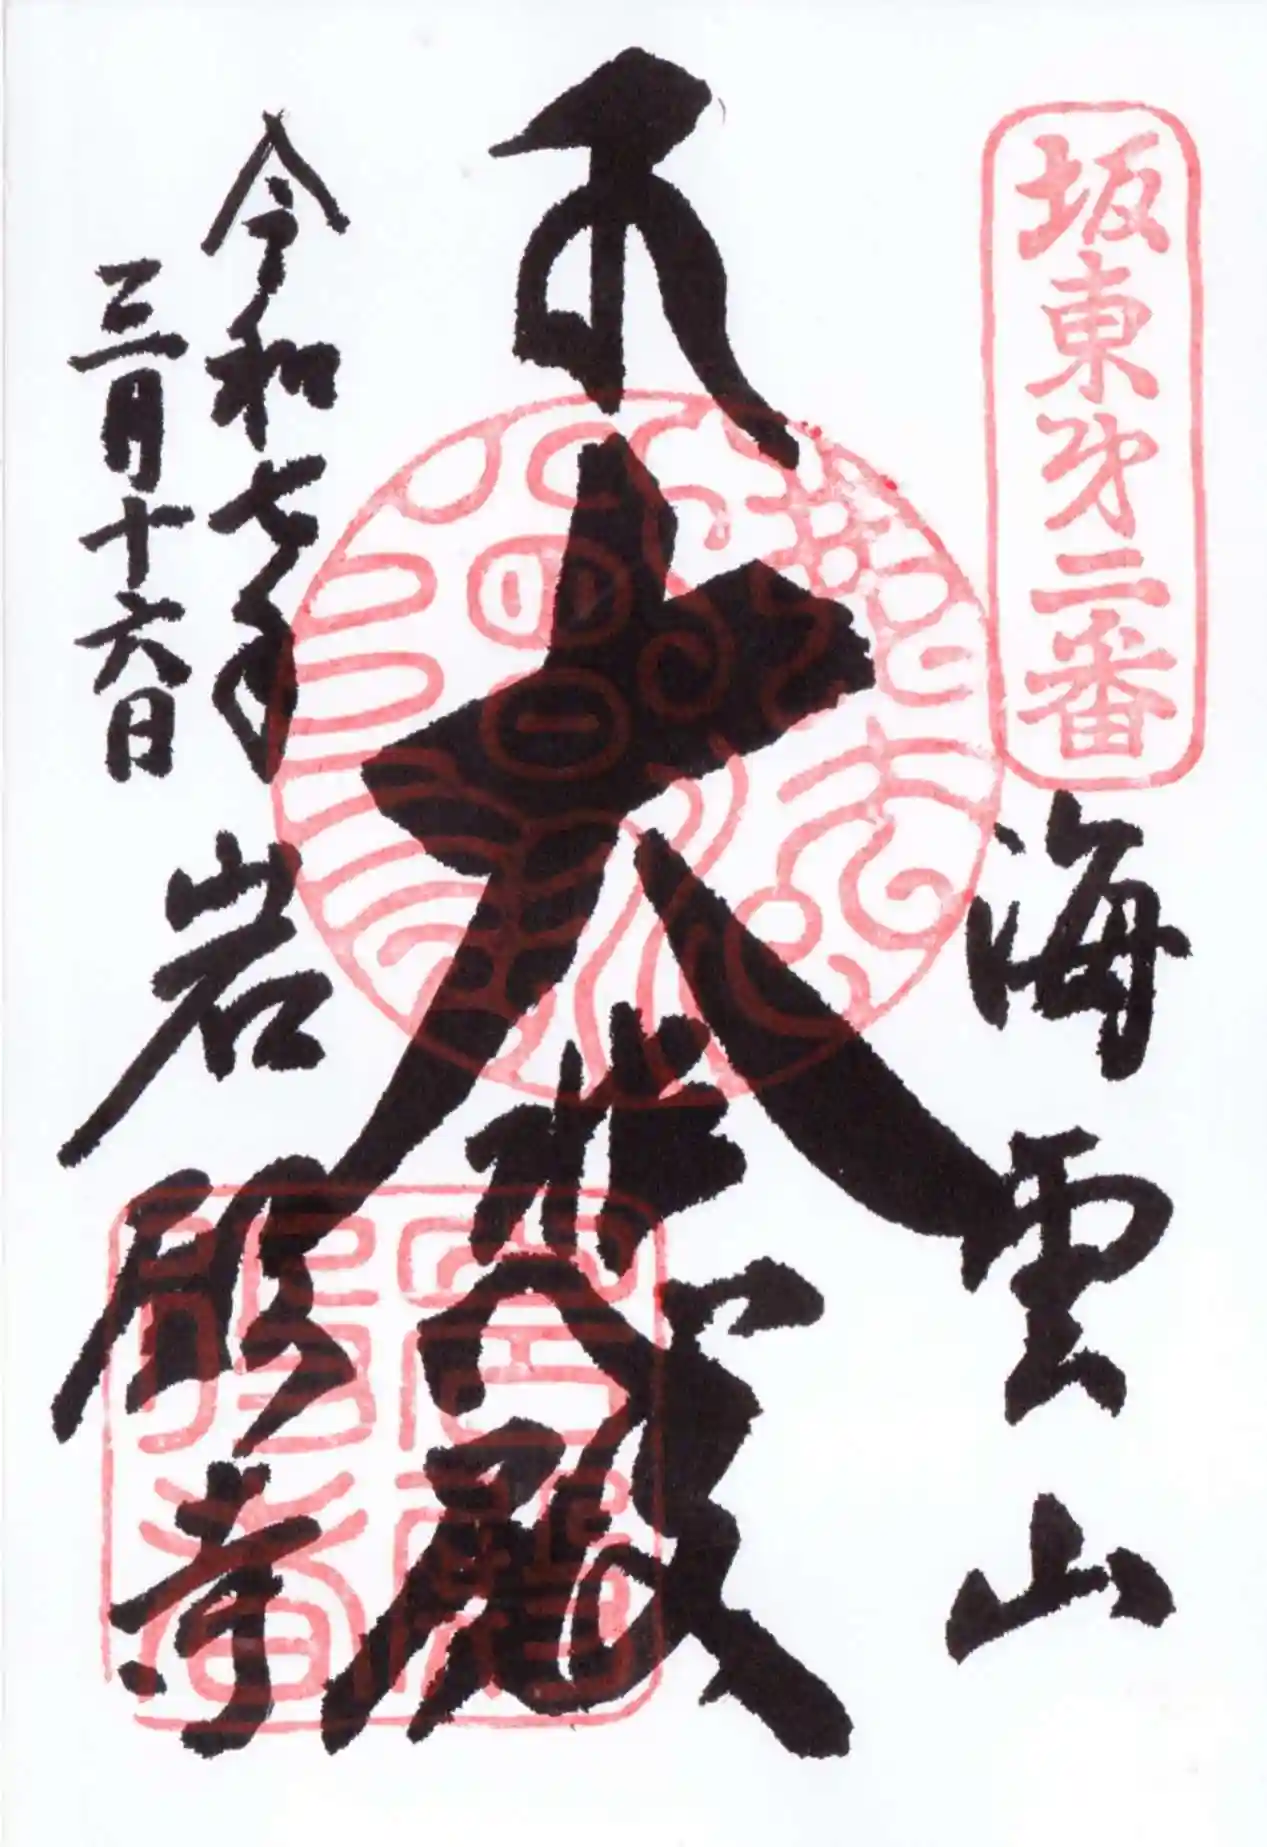 坂東第二番
海雲山
大悲殿
令和七年
三月十六日
岩殿寺